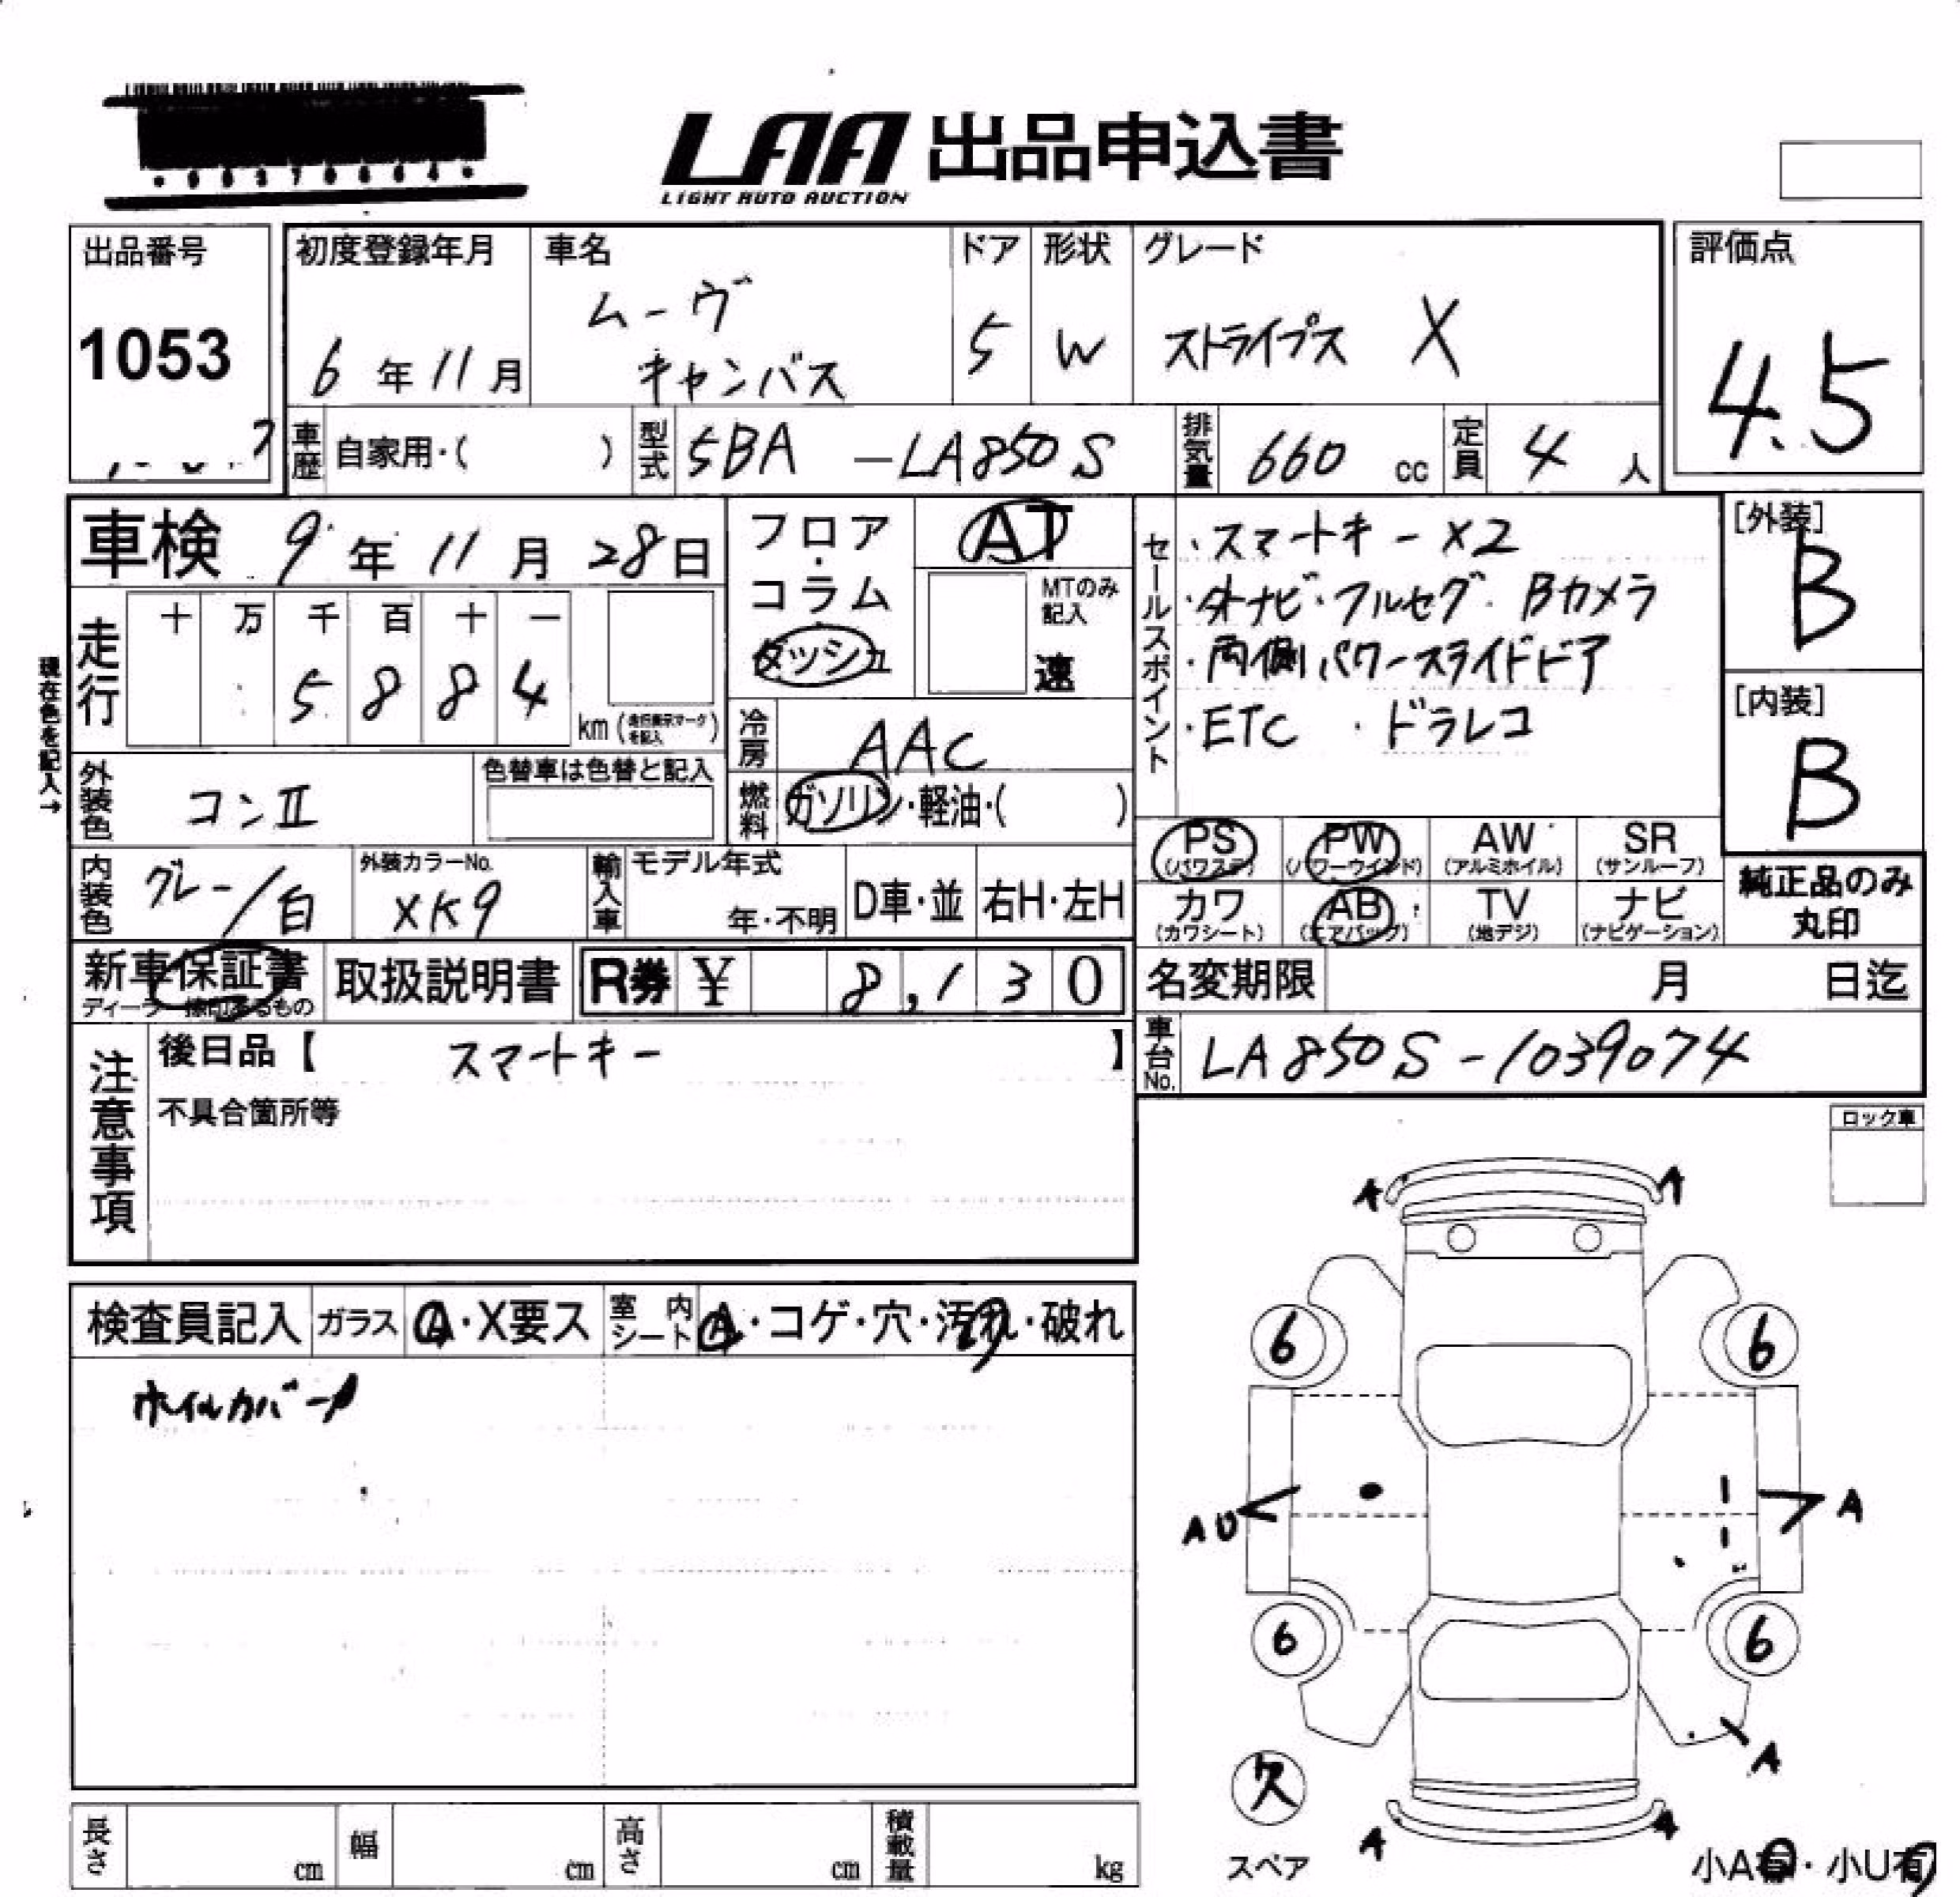 LAA 出品申込書
LIGHT AUTO AUCTION
出品番号
1053
初度登録年月
6年11月
車名
ムーヴ
キャンバス
ドア
5
形状
W
グレード
ストライプス X
評価点
4.5
車歴
自家用・( )
型式
5BA -LA850S
排気量
660 cc
定員
4 人
車検 9年11月28日
フロア・コラム・ダッシュ
AT
MTのみ記入
速
セールスポイント
・スマートキー X2
・外ナビ・フルセグ・Bカメラ
・両側パワースライドドア
・ETC ・ドラレコ
[外装]
B
[内装]
B
現在色を記入→
走行
十 万 千 百 十 一
5 8 8 4
km(走行表示マークを記入)
冷房
AAC
外装色
コンⅡ
色替車は色替と記入
燃料
ガソリン・軽油・( )
PS
(パワステ)
PW
(パワーウインド)
AW
(アルミホイル)
SR
(サンルーフ)
カワ
(カワシート)
AB
(エアバッグ)
TV
(地デジ)
ナビ
(ナビゲーション)
純正品のみ
丸印
内装色
グレー/白
外装カラーNo.
XK9
輸入車
モデル年式
年・不明
D車・並
右H・左H
新車保証書
ディーラー捺印あるもの
取扱説明書
R券 ¥ 8,130
名変期限 月 日迄
車台No.
LA850S-1039074
注意事項
後日品【 スマートキー 】
不具合箇所等
ロック車
検査員記入
ガラス
A・X要ス
室内シート
A・コゲ・穴・汚れ・破れ
ホイルカバーA
A
A
6
6
AU
A
6
6
A
欠
スペア
A
A
小A有・小U有
長さ cm
幅 cm
高さ cm
積載量 kg